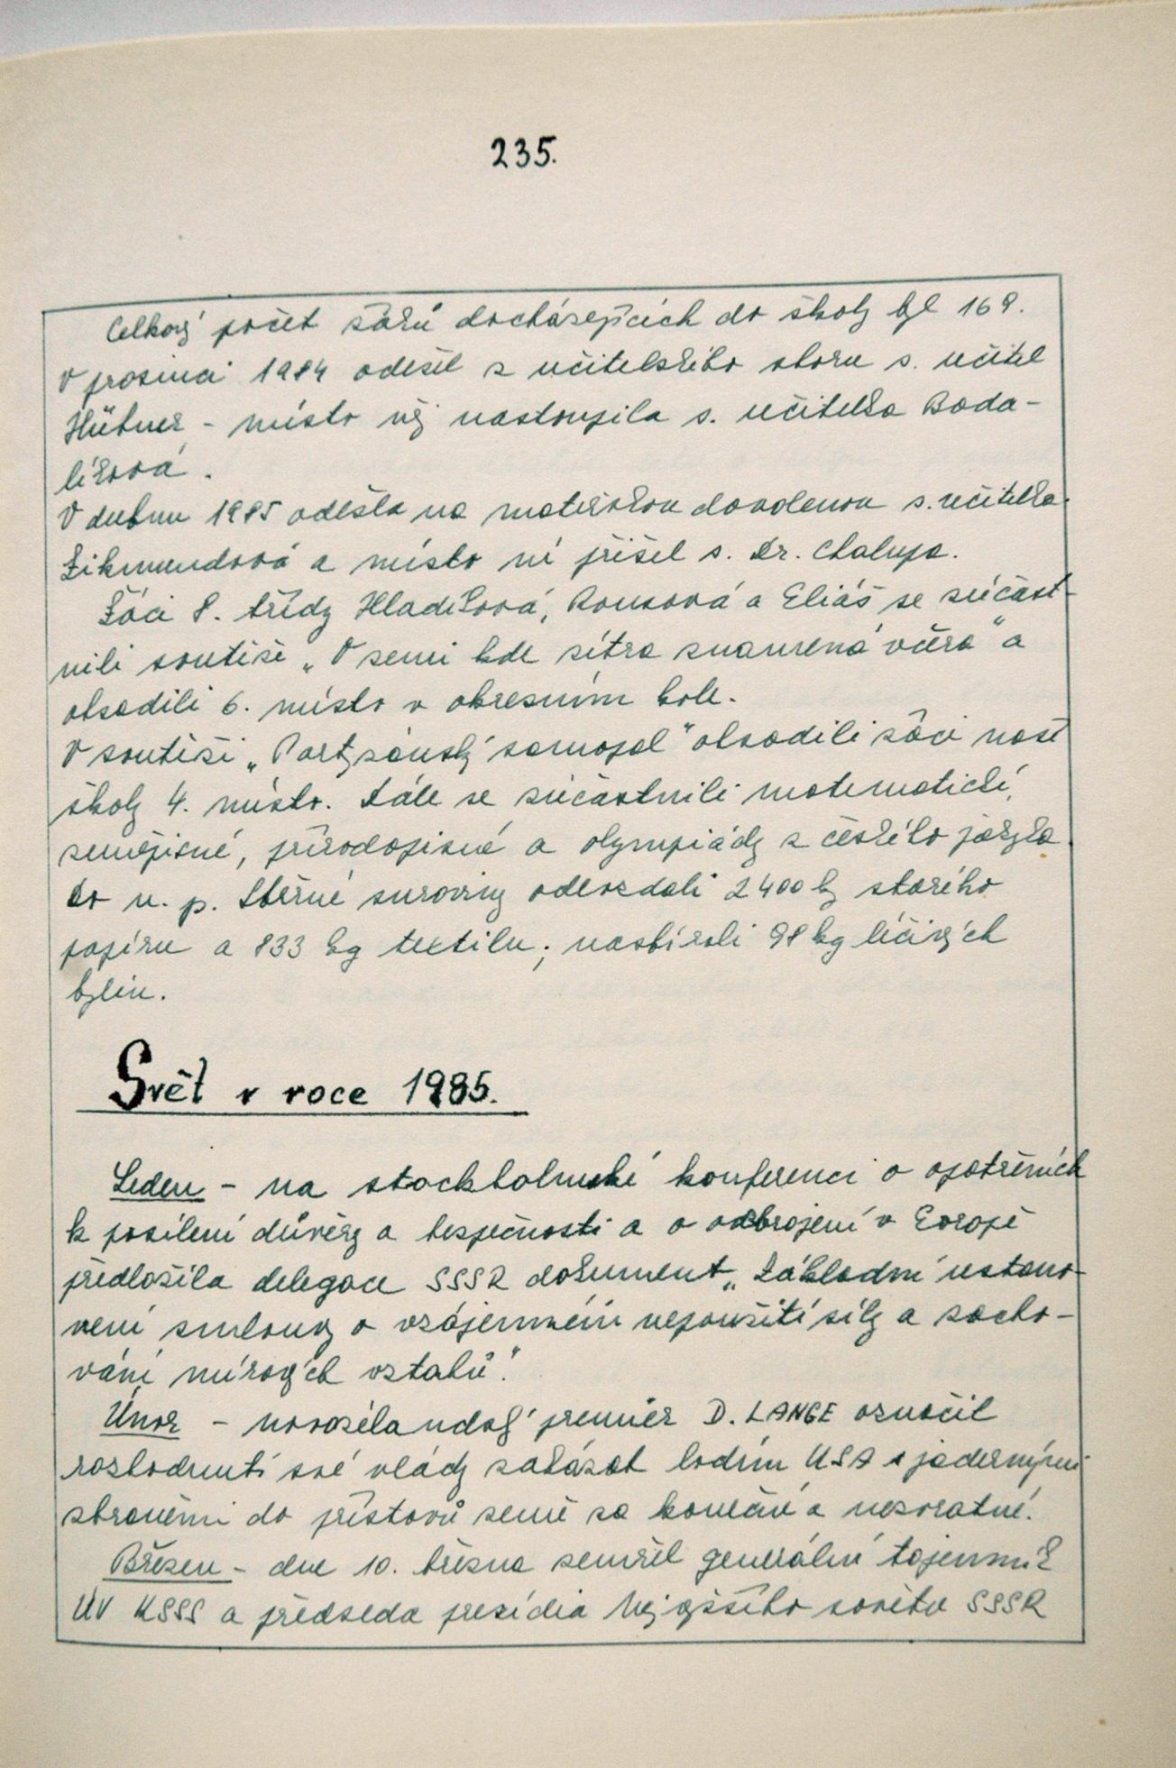 235.
Celkový počet žáků docházejících do školy byl 169.
V prosinci 1984 odešel z učitelského sboru s. učitel
Hübner - místo něj nastoupila s. učitelka Boda-
líková.
V dubnu 1985 odešla na mateřskou dovolenou s. učitelka
Zikmundová a místo ní přišel s. Dr. Chalupa.
Žáci 8. třídy Hladíková, Rousová a Eliáš se zúčast-
nili soutěže „V zemi kde zítra znamená včera" a
obsadili 6. místo v okresním kole.
V soutěži „Partyzánský samopal" obsadili žáci naší
školy 4. místo. Dále se zúčastnili matematické,
zeměpisné, přírodopisné a olympiády z českého jazyka.
Do n. p. Sběrné suroviny odevzdali 2400 kg starého
papíru a 833 kg textilu; nasbírali 98 kg léčivých
bylin.
Svět v roce 1985.
Leden - na stockholmské konferenci o opatřeních
k posílení důvěry a bezpečnosti a o odzbrojení v Evropě
předložila delegace SSSR dokument „Základní ustano-
vení smlouvy o vzájemném nepoužití síly a zacho-
vání mírových vztahů".
Únor - novozélandský premiér D. LANGE označil
rozhodnutí své vlády zakázat lodím USA s jadernými
zbraněmi do přístavů země za konečné a nezvratné.
Březen - dne 10. března zemřel generální tajemník
ÚV KSSS a předseda prezídia Nejvyššího sovětu SSSR